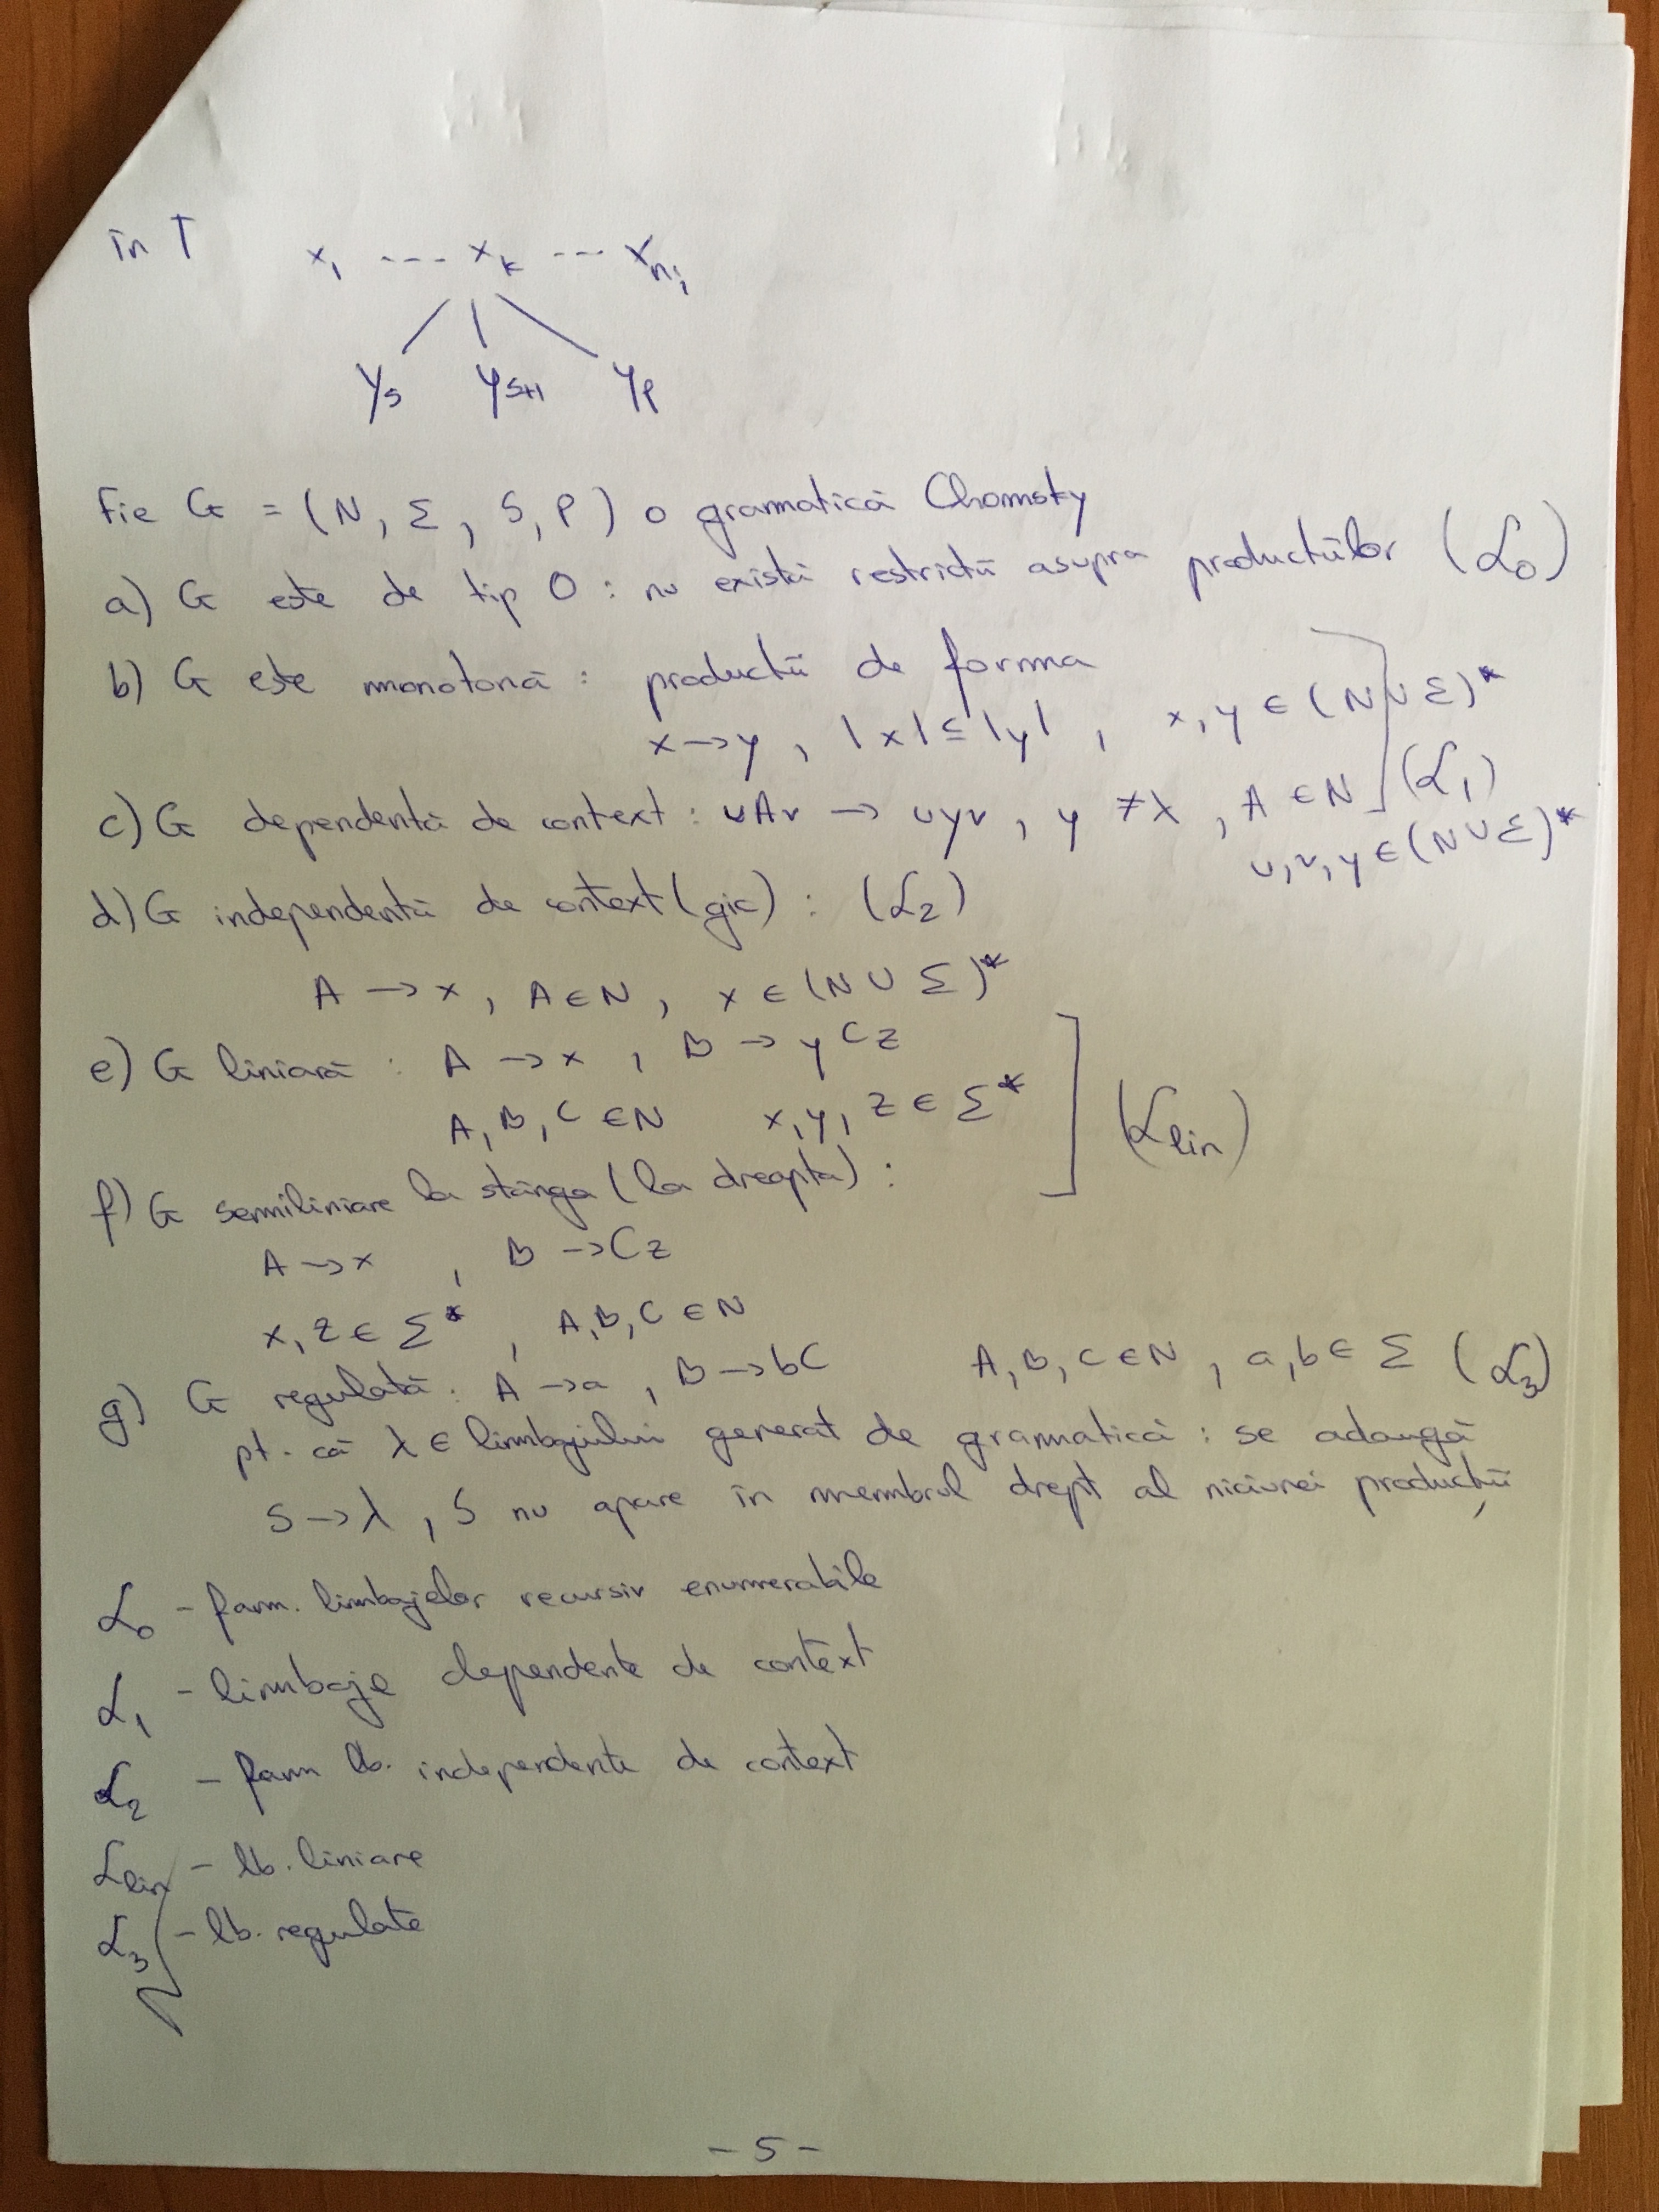 în T x₁ --- xₖ --- xₙᵢ
yₛ yₛ₊₁ yₚ
Fie G = (N, Σ, S, P) o gramatică Chomsky
a) G este de tip 0 : nu există restricții asupra producțiilor (ℒ₀)
b) G este monotonă : producții de forma
x → y , |x| ≤ |y| , x, y ∈ (N ∪ Σ)*
c) G dependentă de context : uAv → uyv , y ≠ λ , A ∈ N (ℒ₁)
u, v, y ∈ (N ∪ Σ)*
d) G independentă de context (gic) : (ℒ₂)
A → x , A ∈ N , x ∈ (N ∪ Σ)*
e) G liniară : A → x , B → yCz
A, B, C ∈ N x, y, z ∈ Σ* (ℒlin)
f) G semiliniare la stânga (la dreapta) :
A → x , B → Cz
x, z ∈ Σ* , A, B, C ∈ N
g) G regulată : A → a , B → bC A, B, C ∈ N , a, b ∈ Σ (ℒ₃)
pt. că λ ∈ limbajului generat de gramatică : se adaugă
S → λ , S nu apare în membrul drept al niciunei producții
ℒ₀ - fam. limbajelor recursiv enumerabile
ℒ₁ - limbaje dependente de context
ℒ₂ - fam lb. independente de context
ℒlin - lb. liniare
ℒ₃ - lb. regulate
- 5 -